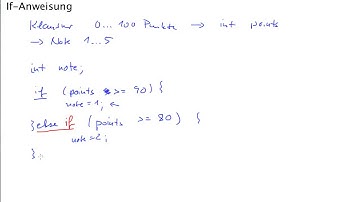 If-Anweisung
Klausur 0...100 Punkte → int points
→ Note 1...5
int note;
if (points >= 90) {
note = 1;
} else if (points >= 80) {
note = 2;
}